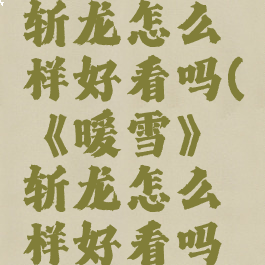 斩龙怎么
样好看吗(
《暖雪》
斩龙怎么
样好看吗